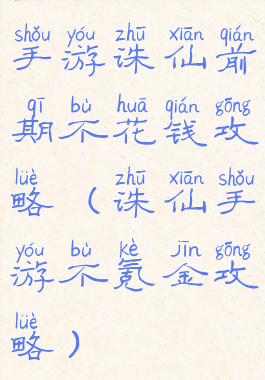 shǒu yóu zhū xiān qián
手游诛仙前
qī bù huā qián gōng
期不花钱攻
lüè zhū xiān shǒu
略（诛仙手
yóu bù kè jīn gōng
游不氪金攻
lüè
略）